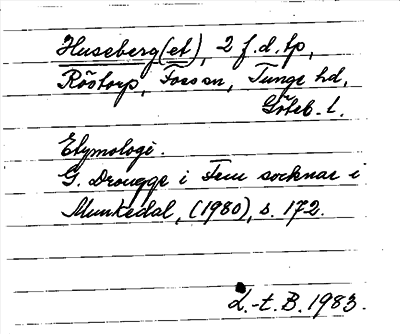 Huseberg(et), 2 f.d. tp,
Röstorp, Foss sn, Tunge hd,
Göteb. l.
Etymologi.
G. Drougge i Fem socknar i
Munkedal, (1980), s. 172.
L.-t. B. 1983.